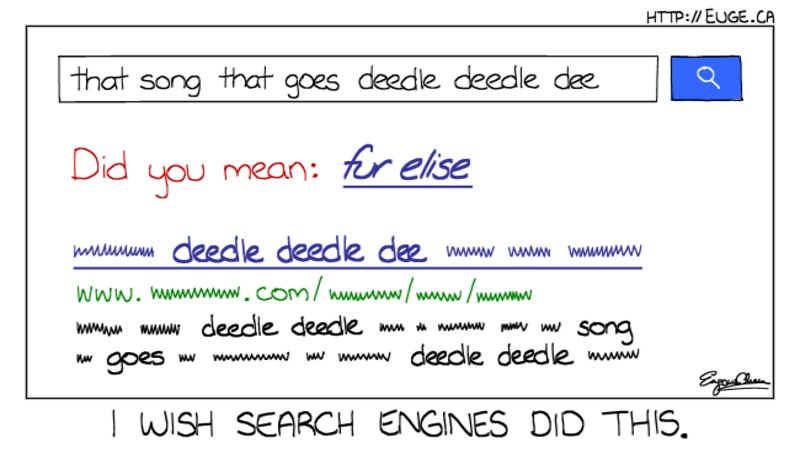 HTTP://EUGE.CA
that song that goes deedle deedle dee
Did you mean: fur elise
deedle deedle dee
www. .com/ / /
deedle deedle song
goes deedle deedle
I WISH SEARCH ENGINES DID THIS.